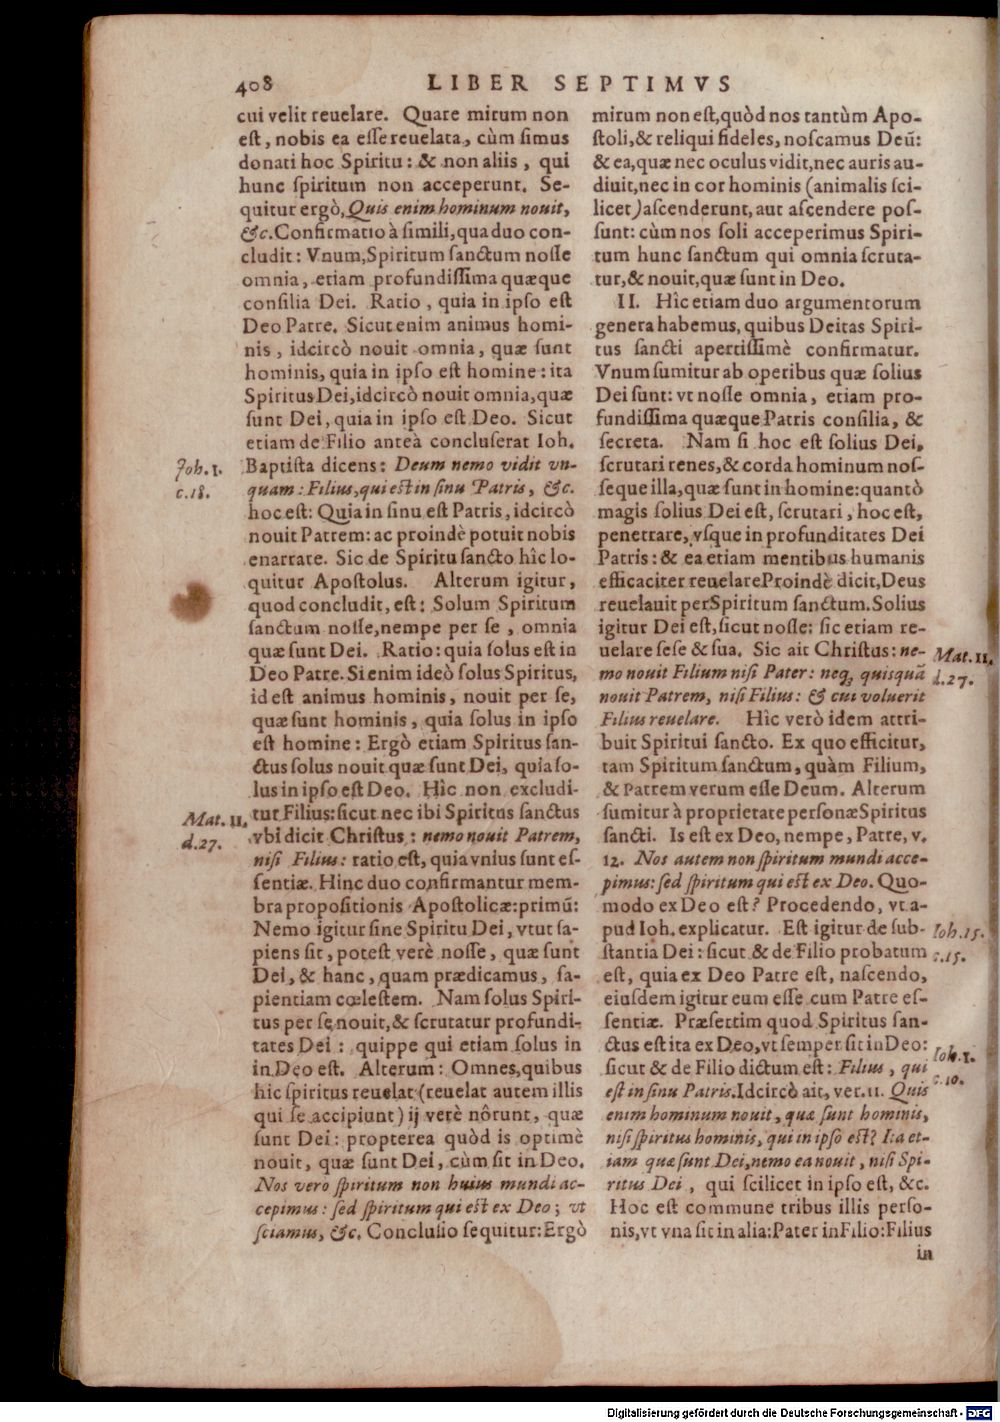 408
LIBER SEPTIMVS
cui velit reuelare. Quare mirum non
est, nobis ea esse reuelata, cùm simus
donati hoc Spiritu: & non aliis, qui
hunc spiritum non acceperunt. Se-
quitur ergò, Quis enim hominum nouit,
&c. Confirmatio à simili, qua duo con-
cludit: Vnum, Spiritum sanctum nosse
omnia, etiam profundissima quæque
consilia Dei. Ratio, quia in ipso est
Deo Patre. Sicut enim animus homi-
nis, idcircò nouit omnia, quæ sunt
hominis, quia in ipso est homine: ita
Spiritus Dei, idcircò nouit omnia, quæ
sunt Dei, quia in ipso est Deo. Sicut
etiam de Filio anteà concluserat Ioh.
Baptista dicens: Deum nemo vidit vn-
quam: Filius, qui est in sinu Patris, &c.
hoc est: Quia in sinu est Patris, idcircò
nouit Patrem: ac proindè potuit nobis
enarrare. Sic de Spiritu sancto hîc lo-
quitur Apostolus. Alterum igitur,
quod concludit, est: Solum Spiritum
sanctum nosse, nempe per se, omnia
quæ sunt Dei. Ratio: quia solus est in
Deo Patre. Si enim ideò solus Spiritus,
id est animus hominis, nouit per se,
quæ sunt hominis, quia solus in ipso
est homine: Ergò etiam Spiritus san-
ctus solus nouit quæ sunt Dei, quia so-
lus in ipso est Deo. Hîc non excludi-
tur Filius: sicut nec ibi Spiritus sanctus
vbi dicit Christus: nemo nouit Patrem,
nisi Filius: ratio est, quia vnius sunt es-
sentiæ. Hinc duo confirmantur mem-
bra propositionis Apostolicæ: primū:
Nemo igitur sine Spiritu Dei, vtut sa-
piens sit, potest verè nosse, quæ sunt
Dei, & hanc, quam prædicamus, sa-
pientiam cœlestem. Nam solus Spiri-
tus per se nouit, & scrutatur profundi-
tates Dei: quippe qui etiam solus in
in Deo est. Alterum: Omnes, quibus
hic spiritus reuelat (reuelat autem illis
qui se accipiunt) ij verè nôrunt, quæ
sunt Dei: propterea quòd is optimè
nouit, quæ sunt Dei, cùm sit in Deo.
Nos vero spiritum non huius mundi ac-
cepimus: sed spiritum qui est ex Deo; vt
sciamus, &c. Conclusio sequitur: Ergò
Joh. 1.
c. 18.
Mat. 11.
d. 27.
mirum non est, quòd nos tantùm Apo-
stoli, & reliqui fideles, noscamus Deū:
& ea, quæ nec oculus vidit, nec auris au-
diuit, nec in cor hominis (animalis sci-
licet) ascenderunt, aut ascendere pos-
sunt: cùm nos soli acceperimus Spiri-
tum hunc sanctum qui omnia scruta-
tur, & nouit, quæ sunt in Deo.
II. Hîc etiam duo argumentorum
genera habemus, quibus Deitas Spiri-
tus sancti apertissimè confirmatur.
Vnum sumitur ab operibus quæ solius
Dei sunt: vt nosse omnia, etiam pro-
fundissima quæque Patris consilia, &
secreta. Nam si hoc est solius Dei,
scrutari renes, & corda hominum nos-
seque illa, quæ sunt in homine: quantò
magis solius Dei est, scrutari, hoc est,
penetrare, vsque in profunditates Dei
Patris: & ea etiam mentibus humanis
efficaciter reuelare Proindè dicit, Deus
reuelauit per Spiritum sanctum. Solius
igitur Dei est, sicut nosse: sic etiam re-
uelare sese & sua. Sic ait Christus: ne-
mo nouit Filium nisi Pater: neq; quisquā
nouit Patrem, nisi Filius: & cui voluerit
Filius reuelare. Hîc verò idem attri-
buit Spiritui sancto. Ex quo efficitur,
tam Spiritum sanctum, quàm Filium,
& Patrem verum esse Deum. Alterum
sumitur à proprietate personæ Spiritus
sancti. Is est ex Deo, nempe, Patre, v.
12. Nos autem non spiritum mundi acce-
pimus: sed spiritum qui est ex Deo. Quo-
modo ex Deo est? Procedendo, vt a-
pud Ioh. explicatur. Est igitur de sub-
stantia Dei: sicut & de Filio probatum
est, quia ex Deo Patre est, nascendo,
eiusdem igitur eum esse cum Patre es-
sentiæ. Præsertim quod Spiritus san-
ctus est ita ex Deo, vt semper sit in Deo:
sicut & de Filio dictum est: Filius, qui
est in sinu Patris. Idcircò ait, ver. 11. Quis
enim hominum nouit, quæ sunt hominis,
nisi spiritus hominis, qui in ipso est? Ita et-
iam quæ sunt Dei, nemo ea nouit, nisi Spi-
ritus Dei, qui scilicet in ipso est, &c.
Hoc est commune tribus illis perso-
nis, vt vna sit in alia: Pater in Filio: Filius
in
Mat. 11.
d. 27.
Ioh. 15.
c. 15.
Ioh. 1.
c. 10.
Digitalisierung gefördert durch die Deutsche Forschungsgemeinschaft - DFG